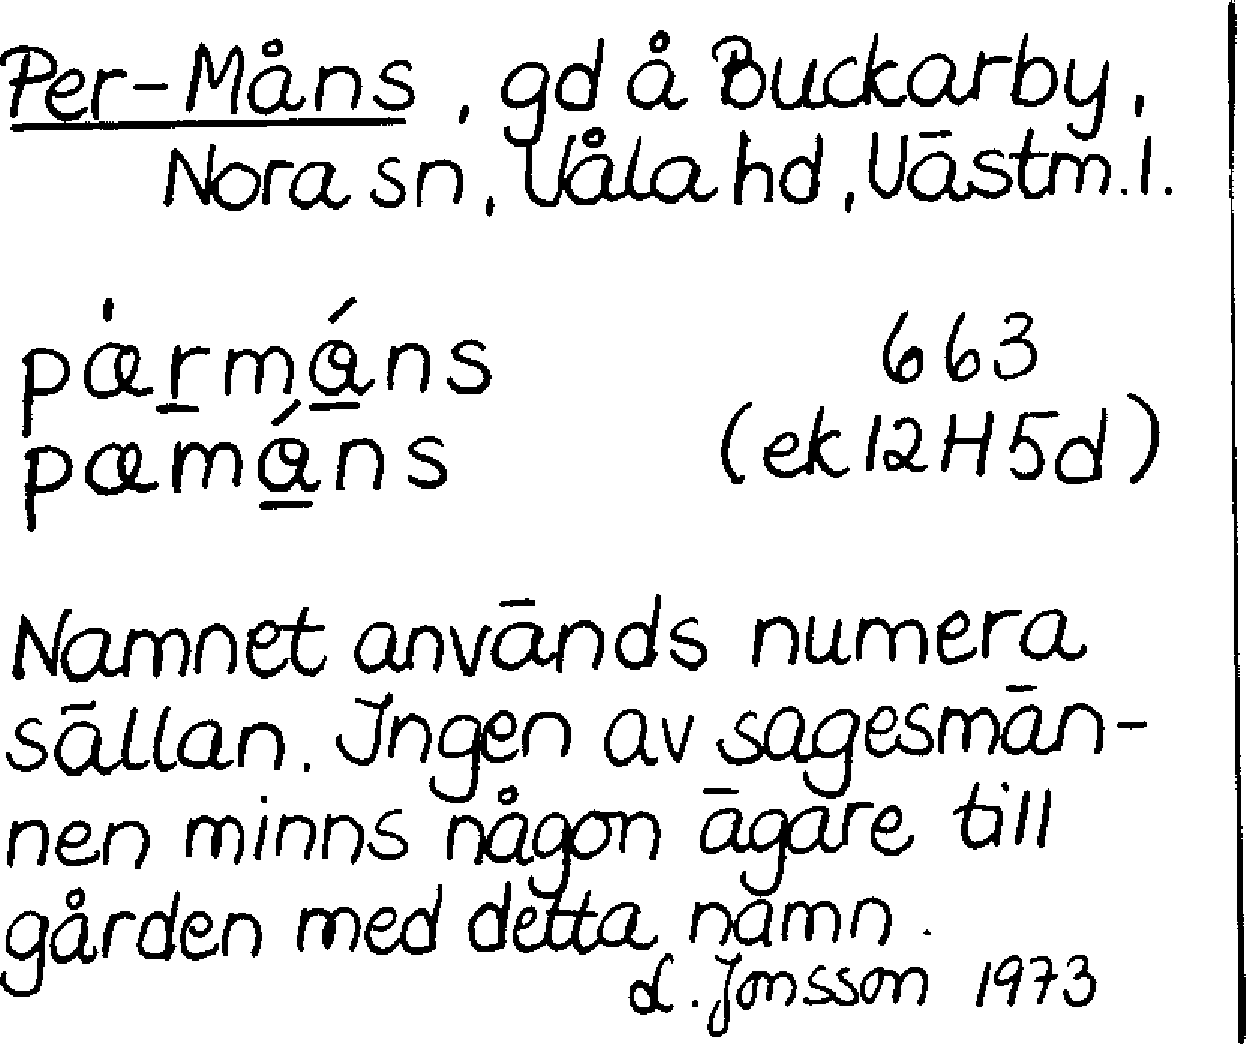 Per-Måns, gd å Buckarby,
Nora sn, Våla hd, Västm.l.
pæ̀rmá̱ns 663
pæmá̱ns (ek 12H5d)
Namnet används numera
sällan. Ingen av sagesmän-
nen minns någon ägare till
gården med detta namn.
L. Jonsson 1973